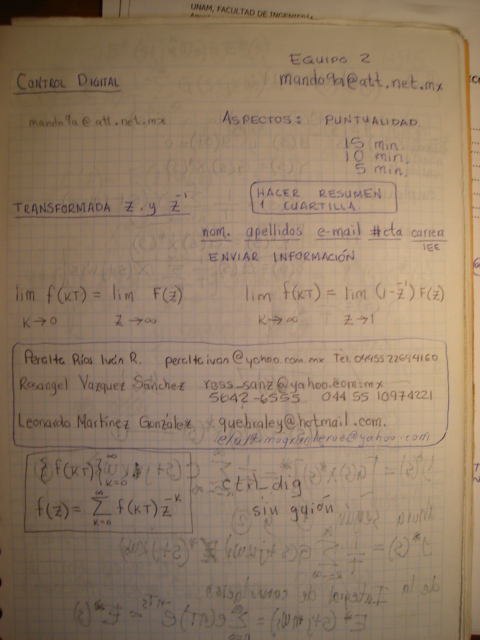 UNAM, FACULTAD DE INGENIERÍA
EQUIPO 2
CONTROL DIGITAL
mando9a@att.net.mx
mando9a@att.net.mx
ASPECTOS: PUNTUALIDAD
15 min.
10 min,
5 min,
HACER RESUMEN
1 CUARTILLA.
TRANSFORMADA Z. y Z⁻¹
nom. apellidos e-mail #cta carrera
IEE
ENVIAR INFORMACIÓN
lim f(KT) = lim F(Z)
K→0 Z→∞
lim f(KT) = lim (1-Z⁻¹) F(Z)
K→∞ Z→1
Peralta Ríos Iván R. peraltaivan@yahoo.com.mx Tel. 04455 22694160
Rosangel Vazquez Sánchez ross_sanz@yahoo.com.mx
5642-6555 044 55 10974221
Leonardo Martínez González quebraley@hotmail.com.
elultimogranheroe@yahoo.com
{f(KT)}∞K=0
f(z) = ∞Σk=0 f(KT) z⁻ᴷ
ctrl_dig
sin guión